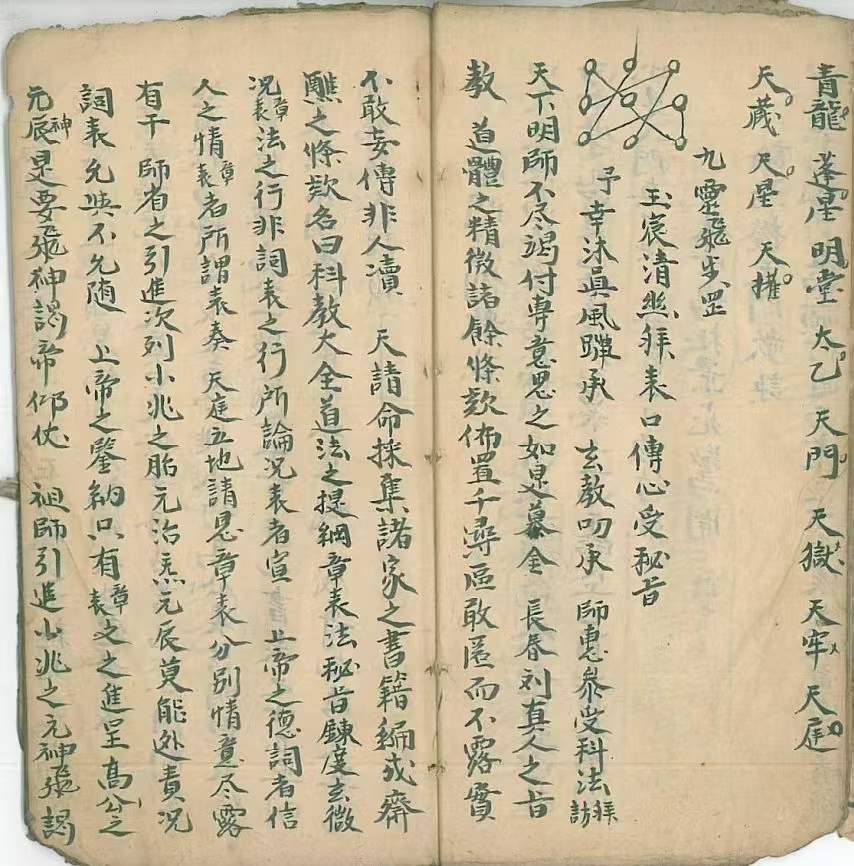 青龍 蓬星 明堂 太乙 天門 天獄 天牢 天庭
天藏 天星 天權
九靈飛步罡
玉宸清煞拜表口傳心受秘旨
予幸沐真風 承 玄教叨承 師惠叅受科法拜訪
天下明師不尽竭付專意思之如是慕全 長春刘真人之旨
教 道體之精微諸餘條款佈置千潯區敢匿而不露實
不敢妄傳非人瀆 天請命採集諸家之書籍編成齋
醮之條款名曰科教大全道法之提綱章表法秘旨鍊度玄微
况章表法之行非詞表之行所論况表者宣 上帝之德詞者信
人之情章表者所謂表奏 天庭立地請恩章表分別情意尽露
有干師省之引進次列小兆之胎元治炁元辰莫能处責况
詞表允與不允随 上帝之鑒納只有章表文之進呈高公之
元辰神是要飛神謁帝仰仗 祖師引進小兆之元神飛謁